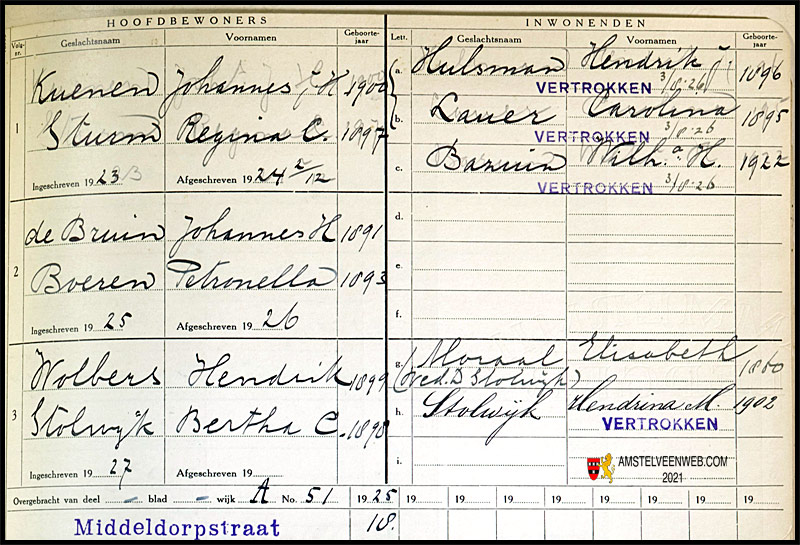 HOOFDBEWONERS
Volg-nr. Geslachtsnaam Voornamen Geboorte-jaar
1 Kuenen Johannes J. H. 1900
Sturm Regina C. 1897
Ingeschreven 1923 Afgeschreven 1924 2/12
2 de Bruin Johannes H 1891
Boeren Petronella 1893
Ingeschreven 19 25 Afgeschreven 19 26
3 Wolbers Hendrik 1899
Stolwijk Bertha C. 1898
Ingeschreven 19 27 Afgeschreven 19
INWONENDEN
Lett. Geslachtsnaam Voornamen Geboorte-jaar
a. Hulsman Hendrik J. 1896
VERTROKKEN 3/8-26
b. Lauer Carolina 1895
VERTROKKEN 3/8-26
c. Baruin Wilh.a H. 1922
VERTROKKEN 3/8-26
d.
e.
f.
g. Moraal Elisabeth 1860
(Wed. D Stolwijk)
h. Stolwijk Hendrina M. 1902
VERTROKKEN
i.
AMSTELVEENWEB.COM
2021
Overgebracht van deel — blad — wijk A No. 51 19 25 19 19 19 19 19 19 19 19
Middeldorpstraat 18.